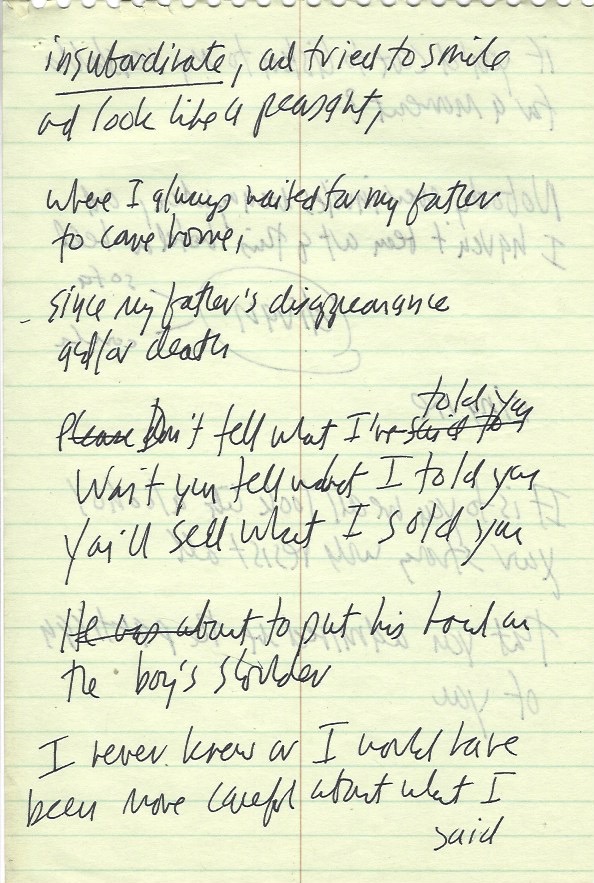 insubordinate, and tried to smile
and look like a peasant,
where I always waited for my father
to come home,
since my father's disappearance
and/or death
told you
Please Don't tell what I've said to
Won't you tell what I told you
You'll sell what I sold you
He was about to put his hand on
the boy's shoulder
I never knew or I would have
been more careful about what I
said